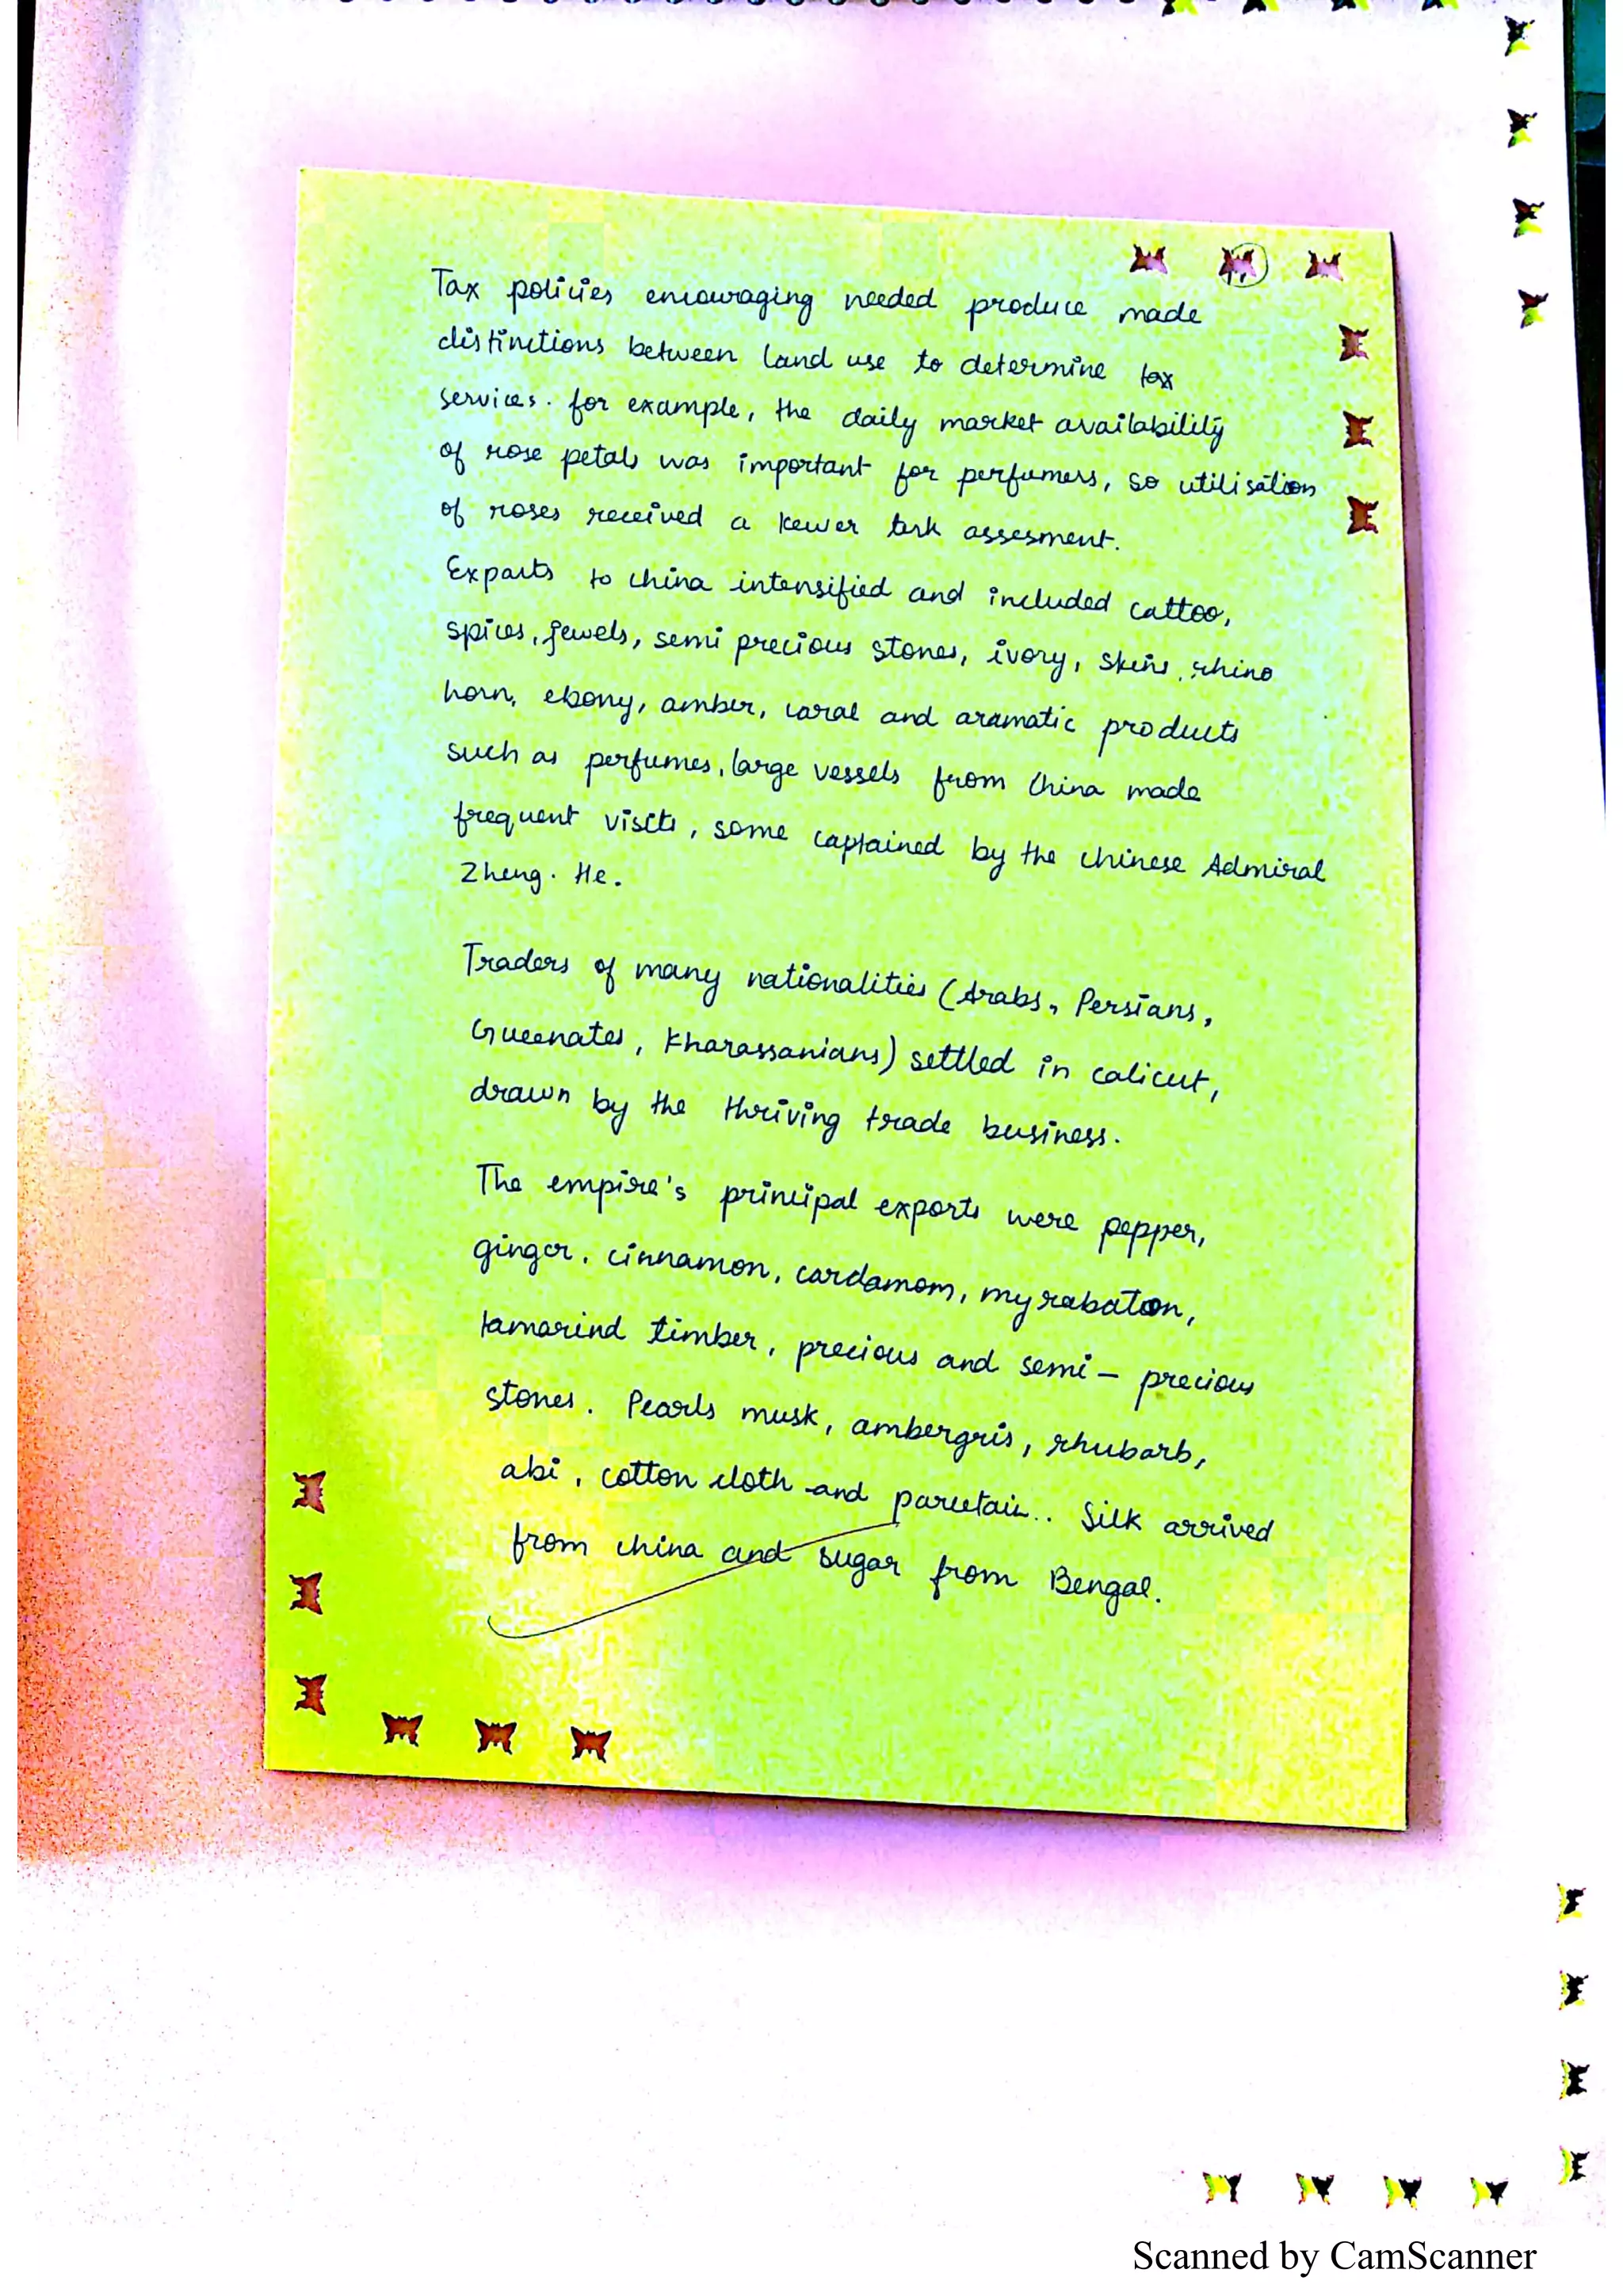 Tax policies encouraging needed produce made
distinctions between land use to determine tax
services. for example, the daily market availability
of rose petals was important for perfumers, so utilisation
of roses received a kewer tark assesment.
Exports to china intensified and included cattoo,
spices, jewels, semi precious stones, ivory, skins, rhino
horn, ebony, amber, coral and aramatic products
such as perfumes, large vessels from China made
frequent visits, some captained by the chinese Admiral
Zheng. He.
Traders of many nationalities (Arabs, Persians,
Gueenates, Kharassanians) settled in calicut,
drawn by the thriving trade business.
The empire's principal exports were pepper,
ginger, cinnamon, cardamom, myrabaton,
tamarind timber, precious and semi - precious
stones. Pearls musk, ambergris, rhubarb,
abi, cotton cloth and Silk arrived
from china and sugar from Bengal.
Scanned by CamScanner